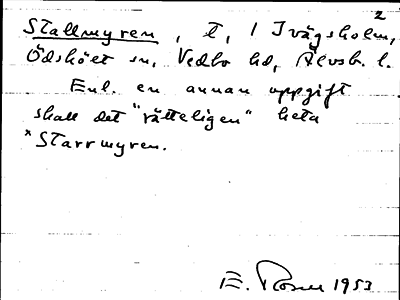 2
Stallmyren, t, 1 Ivägsholm,
Ödskölt sn, Vedbo hd, Älvsb. l.
Enl. en annan uppgift
skall det "rätteligen" heta
*Starrmyren.
E. Rosell 1953